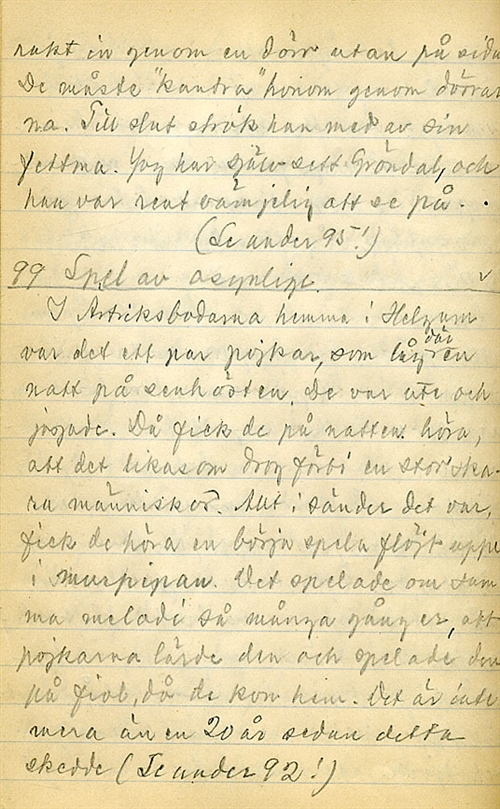 rakt in genom en dörr utan på sida
De måste "kandra" honom genom dörrar
na. Till slut strök han med av sin
fettma. Jag har själv sett Gröndal, och
han var rent vämjelig att se på. .
(Se under 95!)
99 Spel av osynlige.
I Artriksbodarna hemma i Helgum
var det ett par pojkar, som låg där en
natt på senhösten. De var ute och
jagade. Då fick de på natten höra,
att det likasom drog förbi en stor ska-
ra människor. Allt i sänder det var,
fick de höra en börja spela flöjt uppe
i murpipan. Det spelade om sam
ma melodi så många gånger, att
pojkarna lärde den och spelade den
på fiol, då de kom hem. Det är inte
mera än en 20 år sedan detta
skedde (Se under 92!)